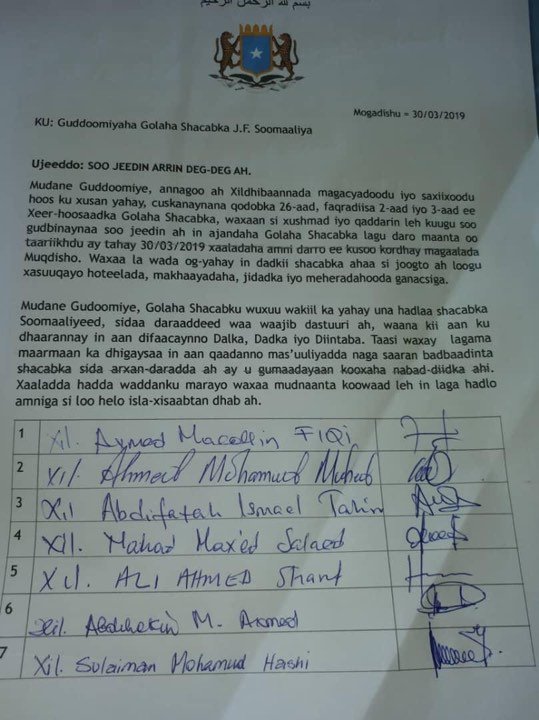 بسم الله الرحمن الرحيم
Mogadishu = 30/03/2019
KU: Guddoomiyaha Golaha Shacabka J.F. Soomaaliya
Ujeeddo: SOO JEEDIN ARRIN DEG-DEG AH.
Mudane Guddoomiye, annagoo ah Xildhibaannada magacyadoodu iyo saxiixoodu
hoos ku xusan yahay, cuskanaynana qodobka 26-aad, faqradiisa 2-aad iyo 3-aad ee
Xeer-hoosaadka Golaha Shacabka, waxaan si xushmad iyo qaddarin leh kuugu soo
gudbinaynaa soo jeedin ah in ajandaha Golaha Shacabka lagu daro maanta oo
taariikhdu ay tahay 30/03/2019 xaaladaha amni darro ee kusoo kordhay magaalada
Muqdisho. Waxaa la wada og-yahay in dadkii shacabka ahaa si joogto ah loogu
xasuuqayo hoteelada, makhaayadaha, jidadka iyo meheradahooda ganacsiga.
Mudane Gudoomiye, Golaha Shacabku wuxuu wakiil ka yahay una hadlaa shacabka
Soomaaliyeed, sidaa daraaddeed waa waajib dastuuri ah, waana kii aan ku
dhaarannay in aan difaacaynno Dalka, Dadka iyo Diintaba. Taasi waxay lagama
maarmaan ka dhigaysaa in aan qaadanno mas'uuliyadda naga saaran badbaadinta
shacabka sida arxan-daradda ah ay u gumaadayaan kooxaha nabad-diidka ahi.
Xaaladda hadda waddanku marayo waxaa mudnaanta koowaad leh in laga hadlo
amniga si loo helo isla-xisaabtan dhab ah.
1 Xil. Axmed Macallin FIQi
2 Xil. Ahmed Mohamud Muhud
3 Xil Abdifatah Ismael Tahir
4 Xil. Mahad Maxed Salaad
5 Xil. ALI AHMED Sharif
6 Xil. Abdihakin M. Axmed
7 Xil. Sulaiman Mohamud Hashi